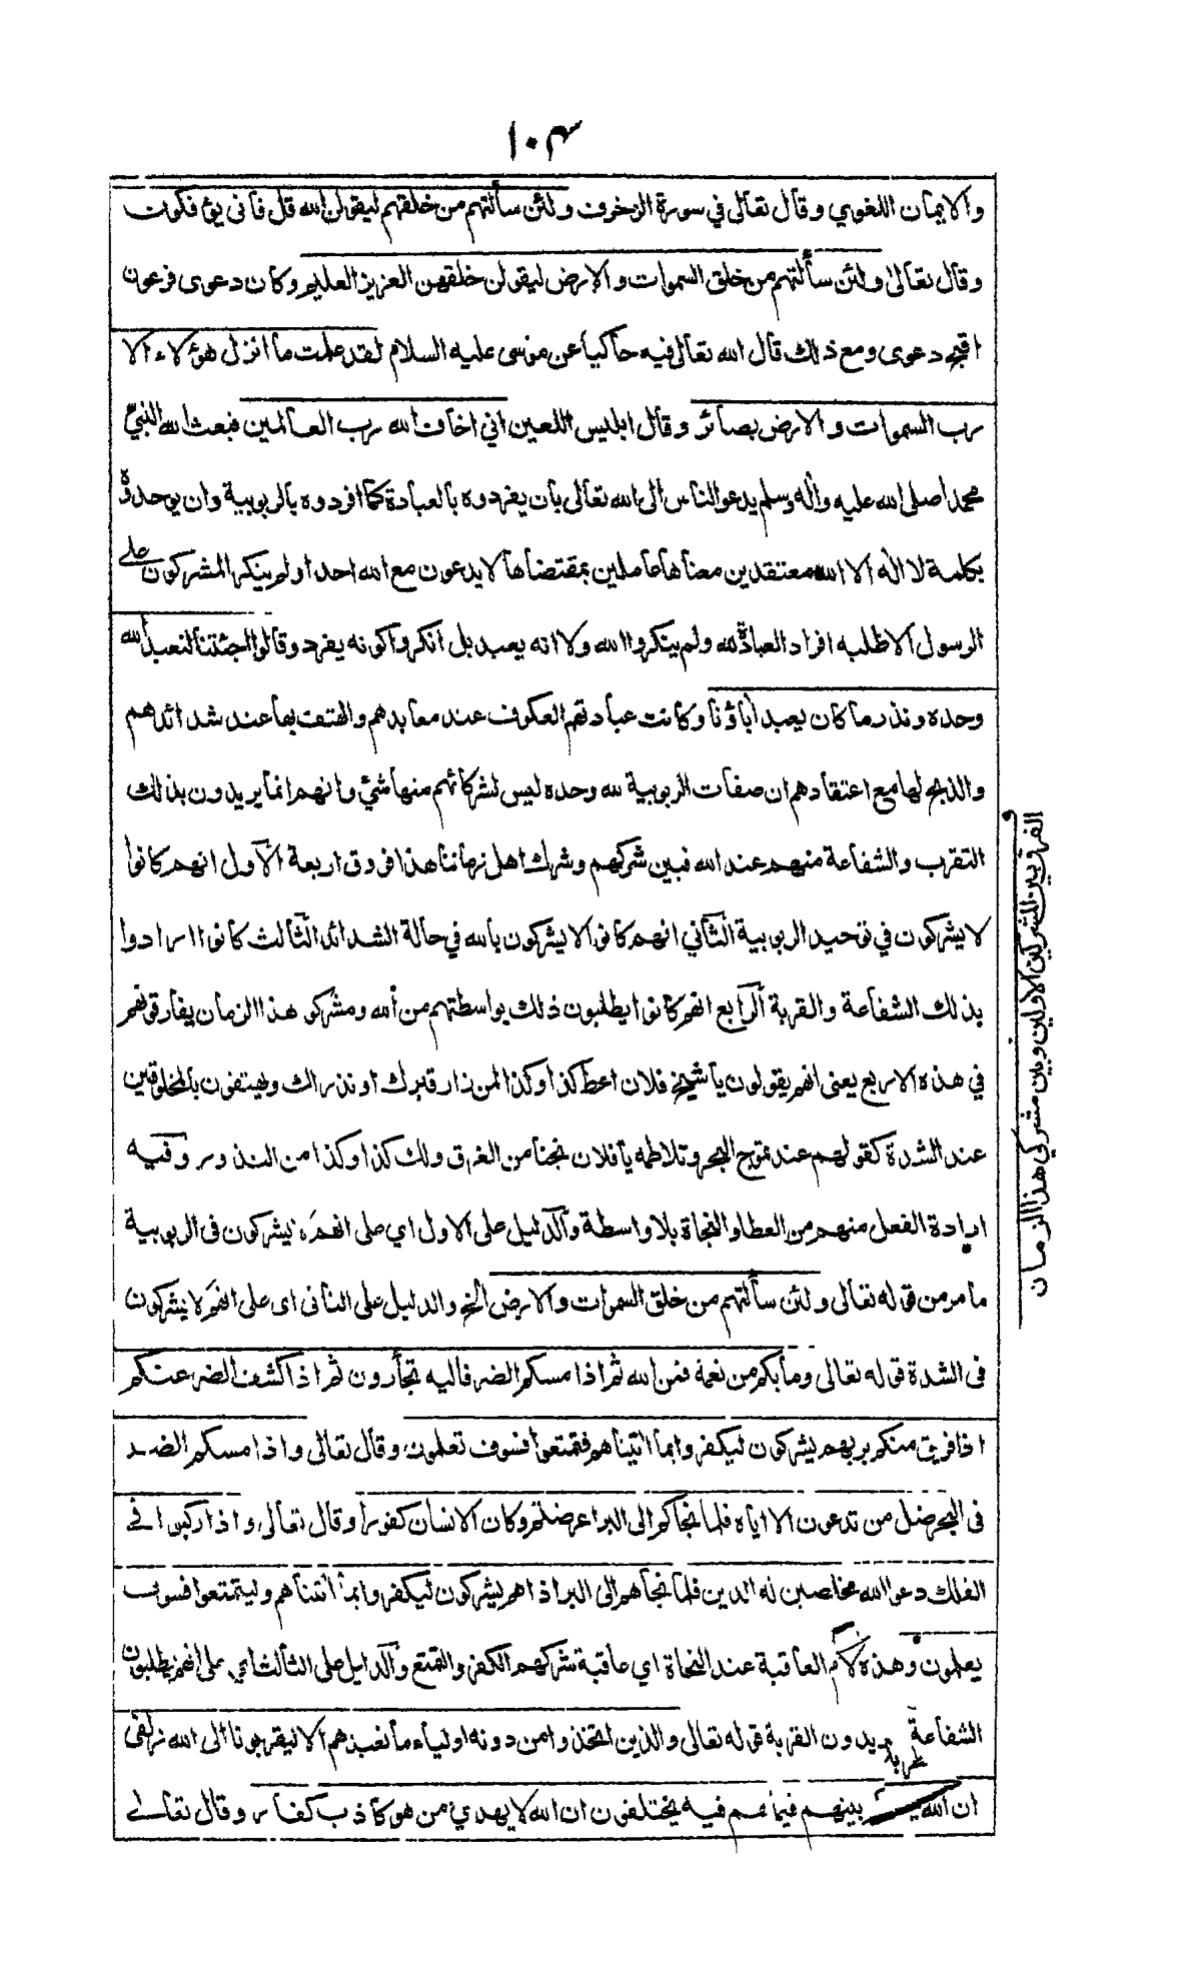 ١٠٣
والايمان اللغوي وقال تعالى في سورة الزخرف ولئن سألتهم من خلقهم ليقولن الله قل فأنى يؤفكون
وقال تعالى ولئن سألتهم من خلق السموات والارض ليقولن خلقهن العزيز العليم وكان دعوى فرعون
اقبح دعوى ومع ذلك قال الله تعالى فيه حاكيا عن موسى عليه السلام لقد علمت ما انزل هؤلاء الا
رب السموات والارض بصائر وقال ابليس اللعين اني اخاف الله رب العالمين فبعث الله النبي
محمدا صلى الله عليه واله وسلم يدعو الناس الى الله تعالى بأن يفردوه بالعبادة كما افردوه بالربوبية وان يوحدوه
بكلمة لا اله الا الله معتقدين معناها عاملين بمقتضاها لا يدعون مع الله احدا ولم ينكر المشركون على
الرسول الا طلبه افراد العبادة لله ولم ينكروا الله ولا انه يعبد بل انكروا كونه يفرد وقالوا اجئتنا لنعبد الله
وحده ونذر ما كان يعبد أباؤنا وكانت عبادتهم العكوف عند معابدهم والهتف بها عند شدائدهم
والذبح لها مع اعتقادهم ان صفات الربوبية لله وحده ليس لشركائهم منها شيء وانهم انما يريدون بذلك
التقرب والشفاعة منهم عند الله فبين شركهم وشرك اهل زماننا هذا فروق اربعة الاول انهم كانوا
لا يشركون في توحيد الربوبية الثاني انهم كانوا لا يشركون بالله في حالة الشدائد الثالث كانوا ارادوا
بذلك الشفاعة والقربة الرابع انهم كانوا يطلبون ذلك بواسطتهم من الله ومشركو هذا الزمان يفارقونهم
في هذه الاربع يعني انهم يقولون يا شيخ فلان اعط كذا وكذا لمن زار قبرك او نذر لك ويهتفون بالمخلوقين
عند الشدة كقولهم عند تموج البحر وتلاطمه يا فلان نجنا من الغرق ولك كذا وكذا من النذور وفيه
ارادة الفعل منهم من العطاء والنجاة بلا واسطة والدليل على الاول اي على انهم يشركون في الربوبية
ما مر من قوله تعالى ولئن سألتهم من خلق السموات والارض الخ والدليل على الثاني اى على انهم لا يشركون
فى الشدة قوله تعالى وما بكم من نعمة فمن الله ثم اذا مسكم الضر فاليه تجأرون ثم اذا كشف الضر عنكم
اذا فريق منكم بربهم يشركون ليكفروا بما اتيناهم فتمتعوا فسوف تعلمون وقال تعالى واذا مسكم الضر
فى البحر ضل من تدعون الا اياه فلما نجاكم الى البر اعرضتم وكان الانسان كفورا وقال تعالى واذا ركبوا في
الفلك دعوا الله مخلصين له الدين فلما نجاهم الى البر اذا هم يشركون ليكفروا بما أتيناهم وليتمتعوا فسوف
يعلمون وهذه لام العاقبة عند النجاة اي عاقبة شركهم الكفر والتمتع والدليل على الثالث اي على انهم يطلبون
الشفاعة يريدون القربة قوله تعالى والذين اتخذوا من دونه اولياء ما نعبدهم الا ليقربونا الى الله زلفى
ان الله بينهم فيما هم فيه يختلفون ان الله لا يهدي من هو كاذب كفار وقال تعالى
الفرق بين المشركين الاولين وبين مشركي هذا الزمان